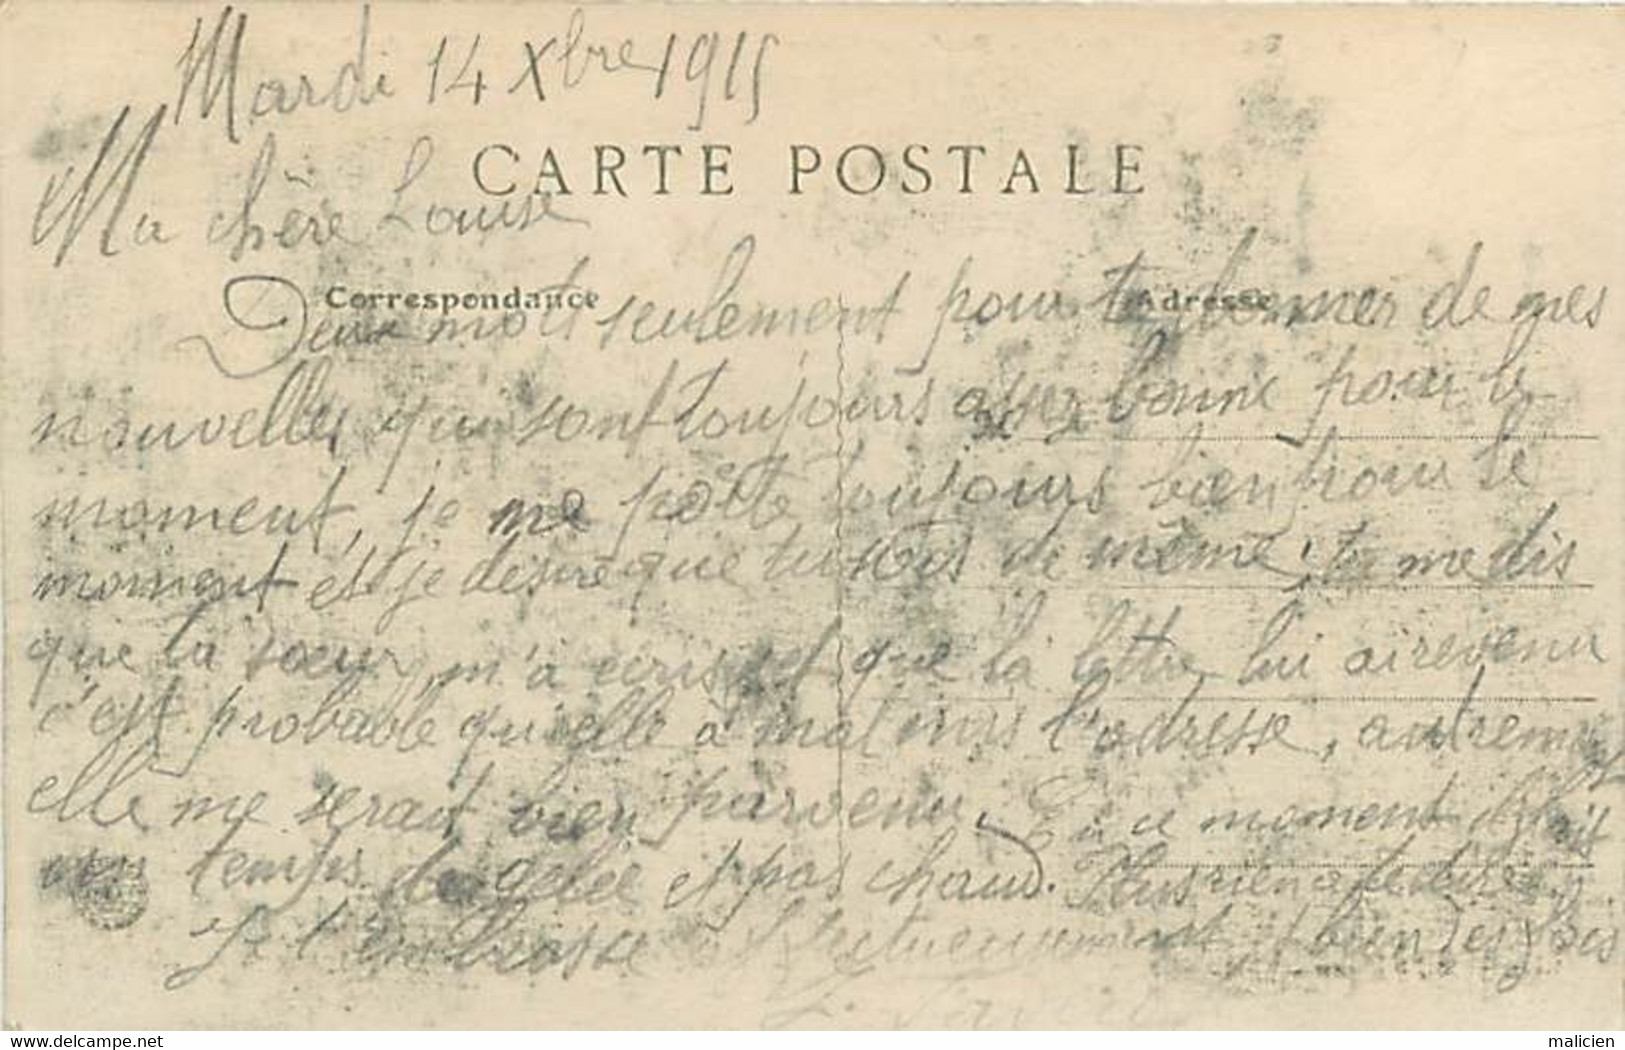 Mardi 14 Xbre 1915
CARTE POSTALE
Ma chère Louise
Correspondance
Adresse
Deux mots seulement pour te donner de mes
nouvelles qui sont toujours assez bonne pour le
moment, je me porte toujours bien pour le
moment et je désire que tu sois de même, tu me dis
que ta sœur m'a écris et que la lettre lui ai revenu
c'est probable qu'elle à mal mis l'adresse, autrement
elle me serait bien parvenu. En ce moment il fait
un temps de gelée et pas chaud. Plus rien a te dire
Je t'embrasse affectueusement bien des fois
© www.delcampe.net
malicien